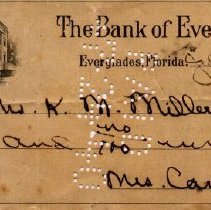 The Bank of Eve
Everglades, Florida.
rs. K. M. Miller
and no/100
Mrs. Car